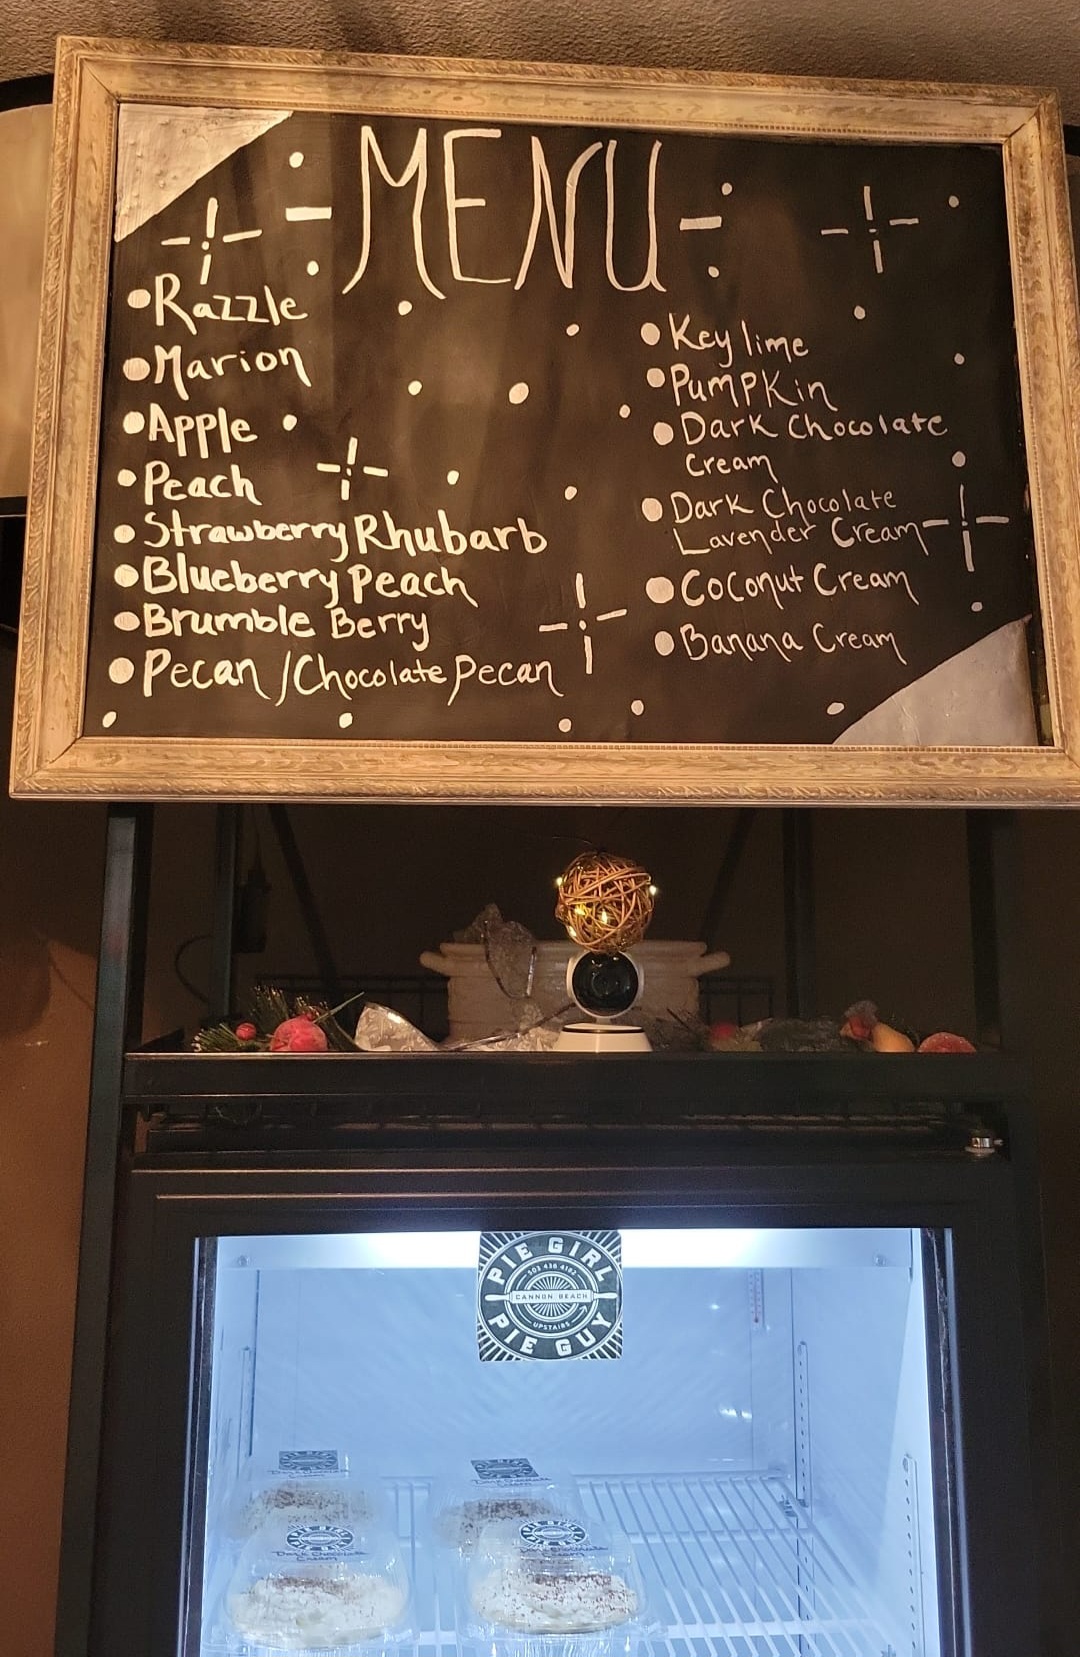 MENU
Razzle
Marion
Apple
Peach
Strawberry Rhubarb
Blueberry Peach
Brumble Berry
Pecan / Chocolate Pecan
Key lime
Pumpkin
Dark Chocolate
Cream
Dark Chocolate
Lavender Cream
Coconut Cream
Banana Cream
PIE GIRL
503 436 4182
CANNON BEACH
UPSTAIRS
PIE GUY
Dark Chocolate
Cream
Dark Chocolate
Cream
Dark Chocolate
Cream
Dark Chocolate
Cream